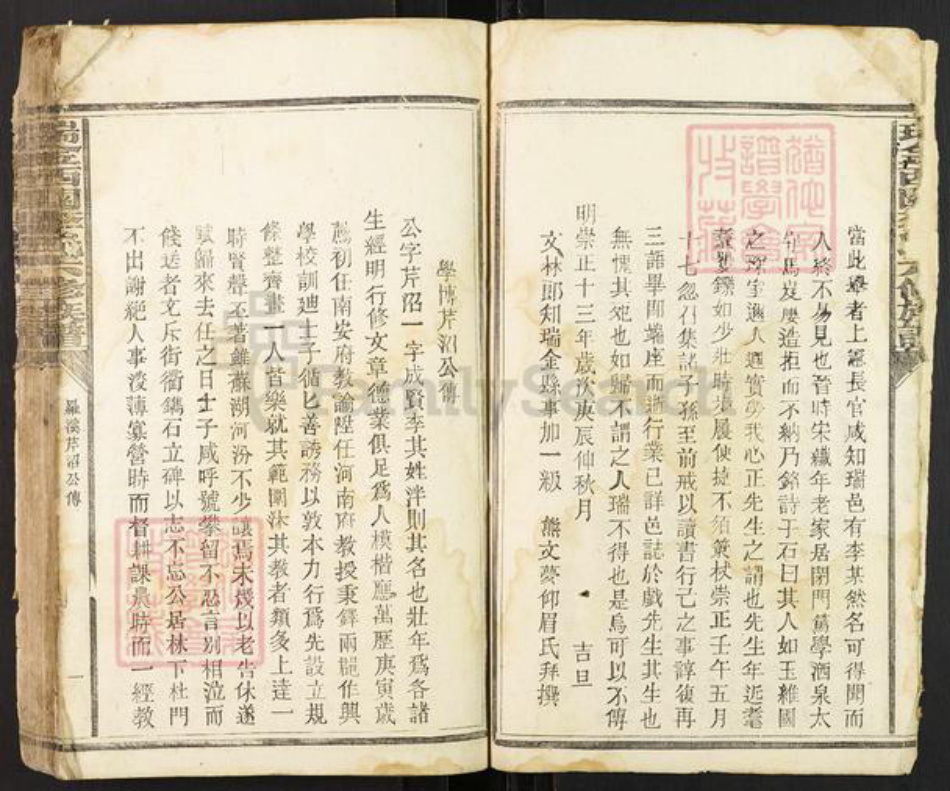 當此舉者上憲長官咸知瑞邑有李某然名可得聞而
人終不易見也晉時宋纖年老家居閉門篤學酒泉太
守馬岌屢造拒而不納乃銘詩于石曰其人如玉維國
之琛室邇人遐實勞我心正先生之謂也先生年近耄
耋矍鑠如少壯時步履便捷不須策杖崇正壬午五月
十七忽召集諸子孫至前戒以讀書行己之事諄復再
三語畢閉端座而逝行業已詳邑誌於戲先生其生也
無愧其死也如歸不謂之人瑞不得也是烏可以不傳
明崇正十三年歲次庚辰仲秋月 吉旦
文林郎知瑞金縣事加一級 熊文夢仰眉氏拜撰
學博芹沼公傳
公字芹沼一字成賢李其姓泮則其名也壯年為各諸
生經明行修文章德業俱足為人模楷應萬歷庚寅歲
薦初任南安府教諭陞任河南府教授秉鐸兩龍作興
學校訓廸士子循匕善誘務以敦本力行為先設立規
條整齊畫一人皆樂就其範圍沐其教者類多上達一
時賢聲丕著雖蘇湖河汾不少讓焉未幾以老告休遂
賦歸來去任之日士子咸呼號攀留不忍言別相泣而
餞送者文斥街衢鐫石立碑以志不忘公居林下杜門
不出謝絕人事淡薄寡營時而督耕課農時而一經教
羅溪芹沼公傳
一
FamilySearch